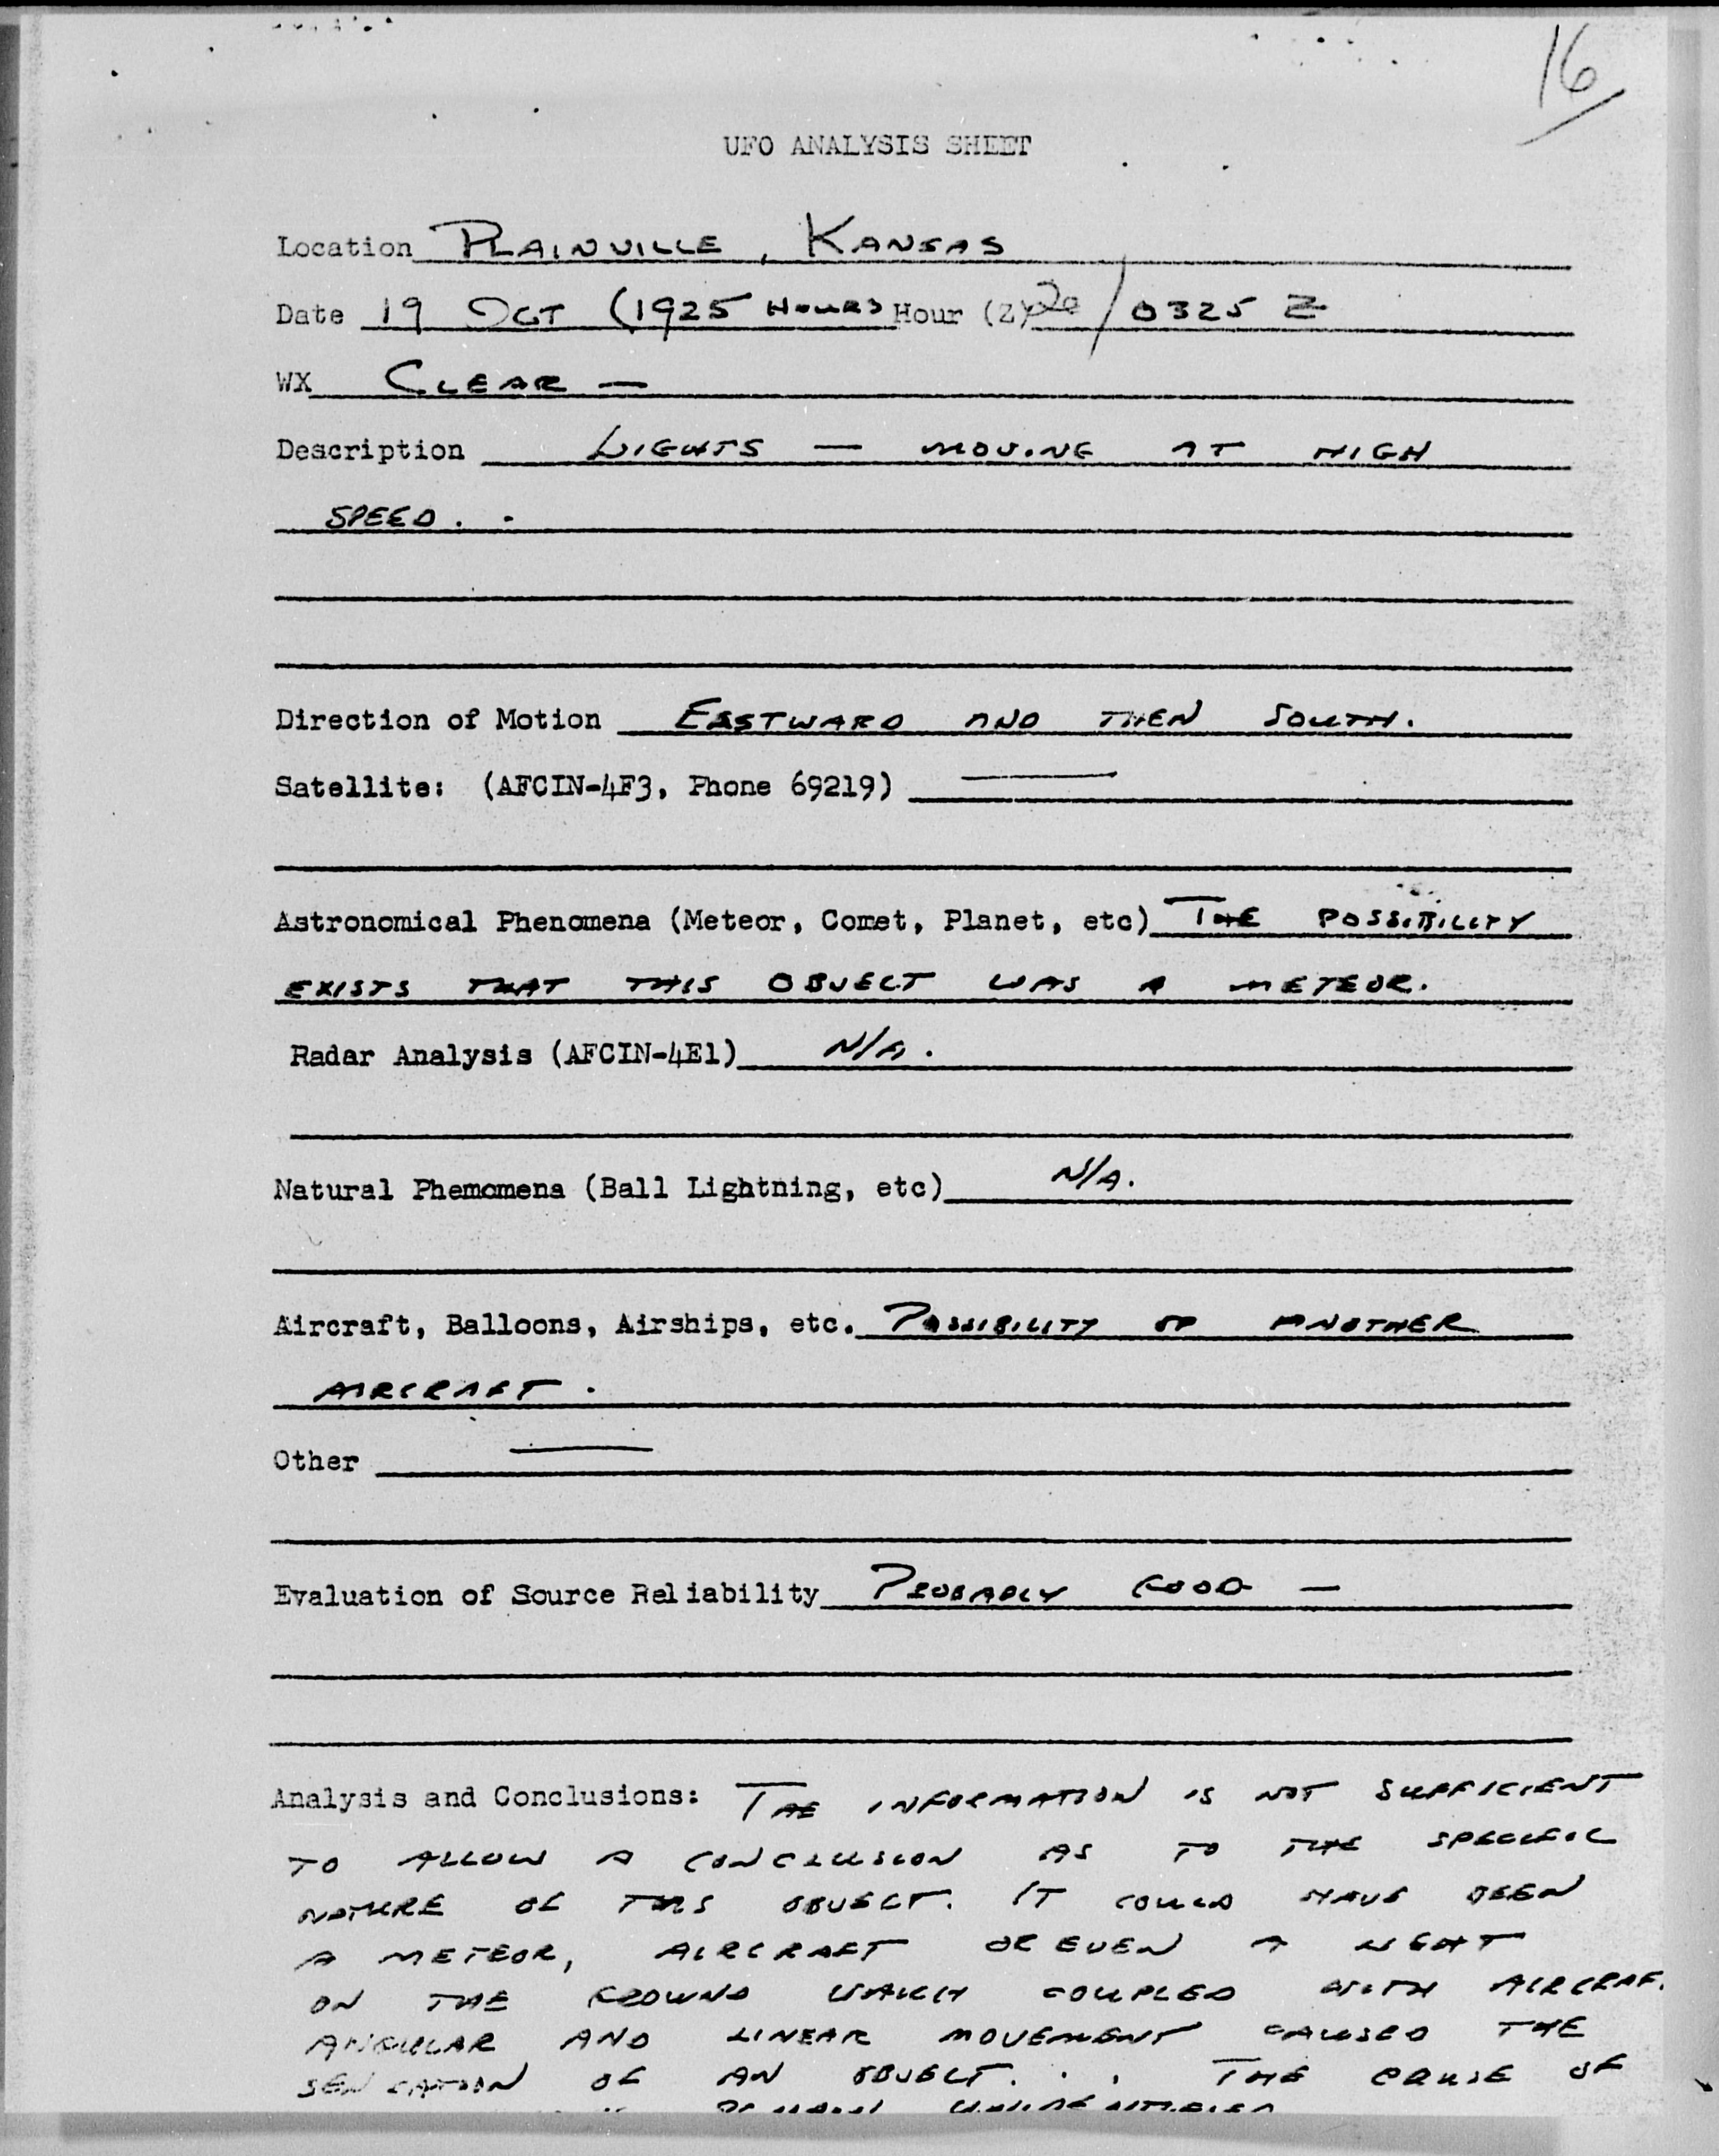 16
UFO ANALYSIS SHEET
Location PLAINVILLE, KANSAS
Date 19 OCT (1925 HOURS Hour (Z) 20/0325 Z
WX CLEAR —
Description LIGHTS — MOVING AT HIGH
SPEED. .
Direction of Motion EASTWARD AND THEN SOUTH.
Satellite: (AFCIN-4F3, Phone 69219) —
Astronomical Phenomena (Meteor, Comet, Planet, etc) THE POSSIBILITY
EXISTS THAT THIS OBJECT WAS A METEOR.
Radar Analysis (AFCIN-4E1) N/A.
Natural Phemomena (Ball Lightning, etc) N/A.
Aircraft, Balloons, Airships, etc. POSSIBILITY OF ANOTHER
AIRCRAFT.
Other —
Evaluation of Source Reliability PROBABLY GOOD —
Analysis and Conclusions: THE INFORMATION IS NOT SUFFICIENT
TO ALLOW A CONCLUSION AS TO THE SPECIFIC
NATURE OF THIS OBJECT. IT COULD HAVE BEEN
A METEOR, AIRCRAFT OR EVEN A LIGHT
ON THE GROUND WHICH COUPLED WITH AIRCRAF
ANGULAR AND LINEAR MOVEMENT CAUSED THE
SENSATION OF AN OBJECT. . . THE CAUSE OF